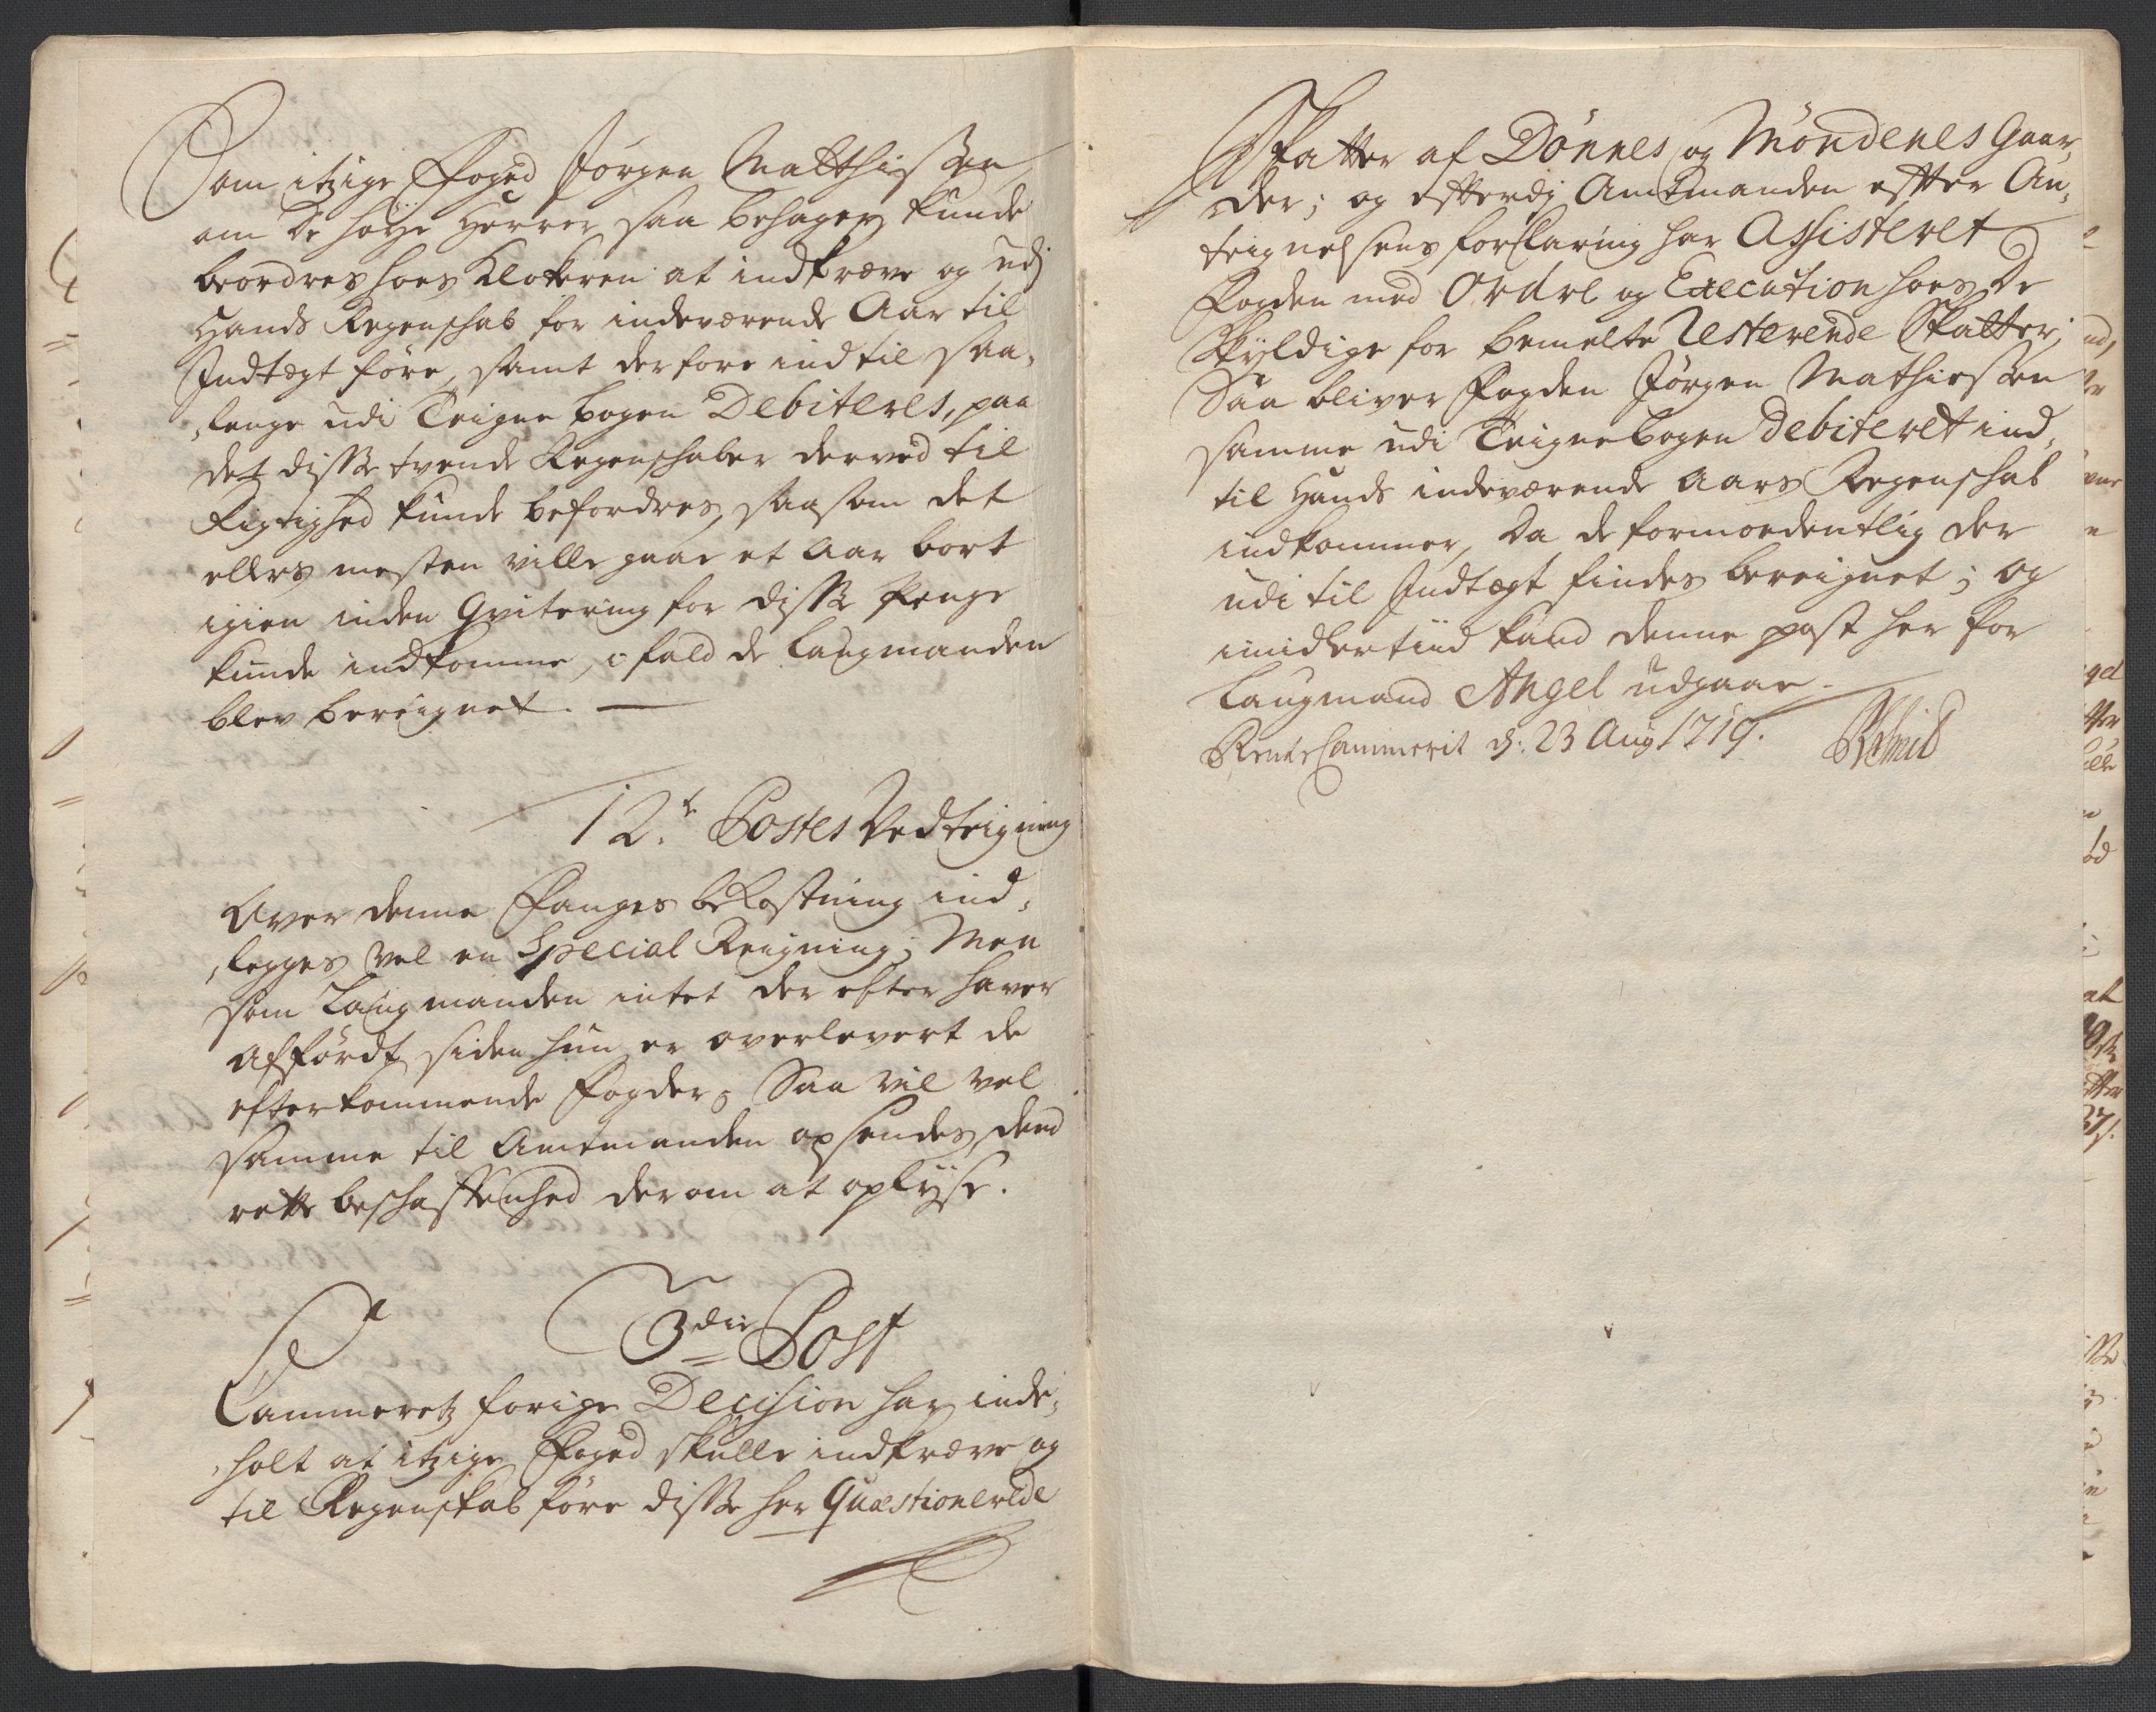 Som itzige Foged Jørgen Matthiesen
om De høye Herrer saa behager kunde
beordres hoes Klokeren at indkræve og udj
Hands Regenschab for indeværende Aar til
Indtægt føre, samt derfore indtil saa,
,lenge udi Teigne bogen Debiteres, paa
det disse tvende Regenschaber derved til
Rigtighed kunde befordres, saasom det
ellers mesten ville gaae et Aar bort
igien inden Qvitering for disse Penge
kunde indkomme, i fald de Laugmanden
blev bereignet.
12te Postes Vedteigning
Over denne Fanges bekostning ind,
,legges vel en Special Reigning; Men
som Laugmanden intet der efter haver
affördt, siden hun er overlevert de
efterkommende Fogder, Saa vil vel
samme til Amtmanden opsendes, dend
rette beschaffenhed derom at oplyse.
3die Post
Cammeretz forige Decision har inde,
,holt at itzige Foged skulle indkræve og
til Regenskab føre disse her Quæstionerede
Skatter af Dönnes og Möndenes Gaar,
der; og efterdj Amtmanden efter An,
teignelsens forklaring har Assisteret
Fogden med Ordre og Execution hoes De
Skyldige for bemelte Resterende Skatter;
Saa bliver Fogden Jørgen Mathiesen
samme udi Teignebogen Debiteret ind,
til Hands indeværende Aars Regenschab
indkommer, Da de formodentlig der
udi til Indtægt findes bereignet; og
imidlertiid kand denne post her for
Laugmand Angel udgaae.
RenteCammerit d: 23 Aug 1719.